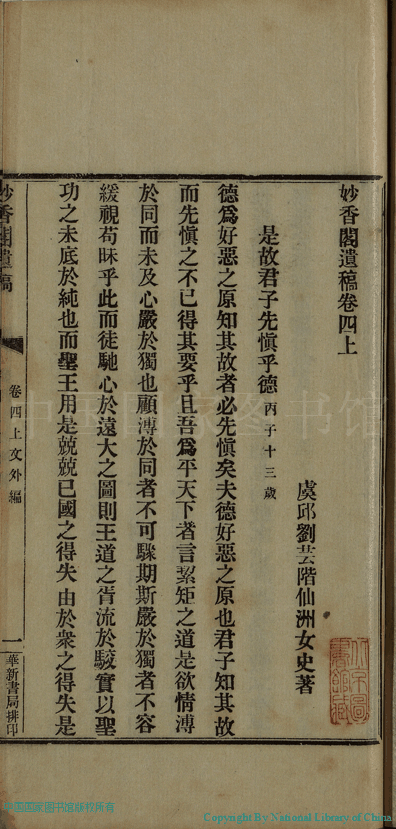 妙香閣遺稿卷四上
虞邱劉芸階仙洲女史著
是故君子先慎乎德 丙子十三歲
德爲好惡之原知其故者必先慎矣夫德好惡之原也君子知其故
而先慎之不已得其要乎且吾爲平天下者言絜矩之道是欲情溥
於同而未及心嚴於獨也顧溥於同者不可驟期斯嚴於獨者不容
緩視苟昧乎此而徒馳心於遠大之圖則王道之胥流於駁實以聖
功之未底於純也而聖王用是兢兢已國之得失由於衆之得失是
妙香閣遺稿
卷四上文外編
一
華新書局排印
中国国家图书馆
中国国家图书馆版权所有
Copyright By National Library of China